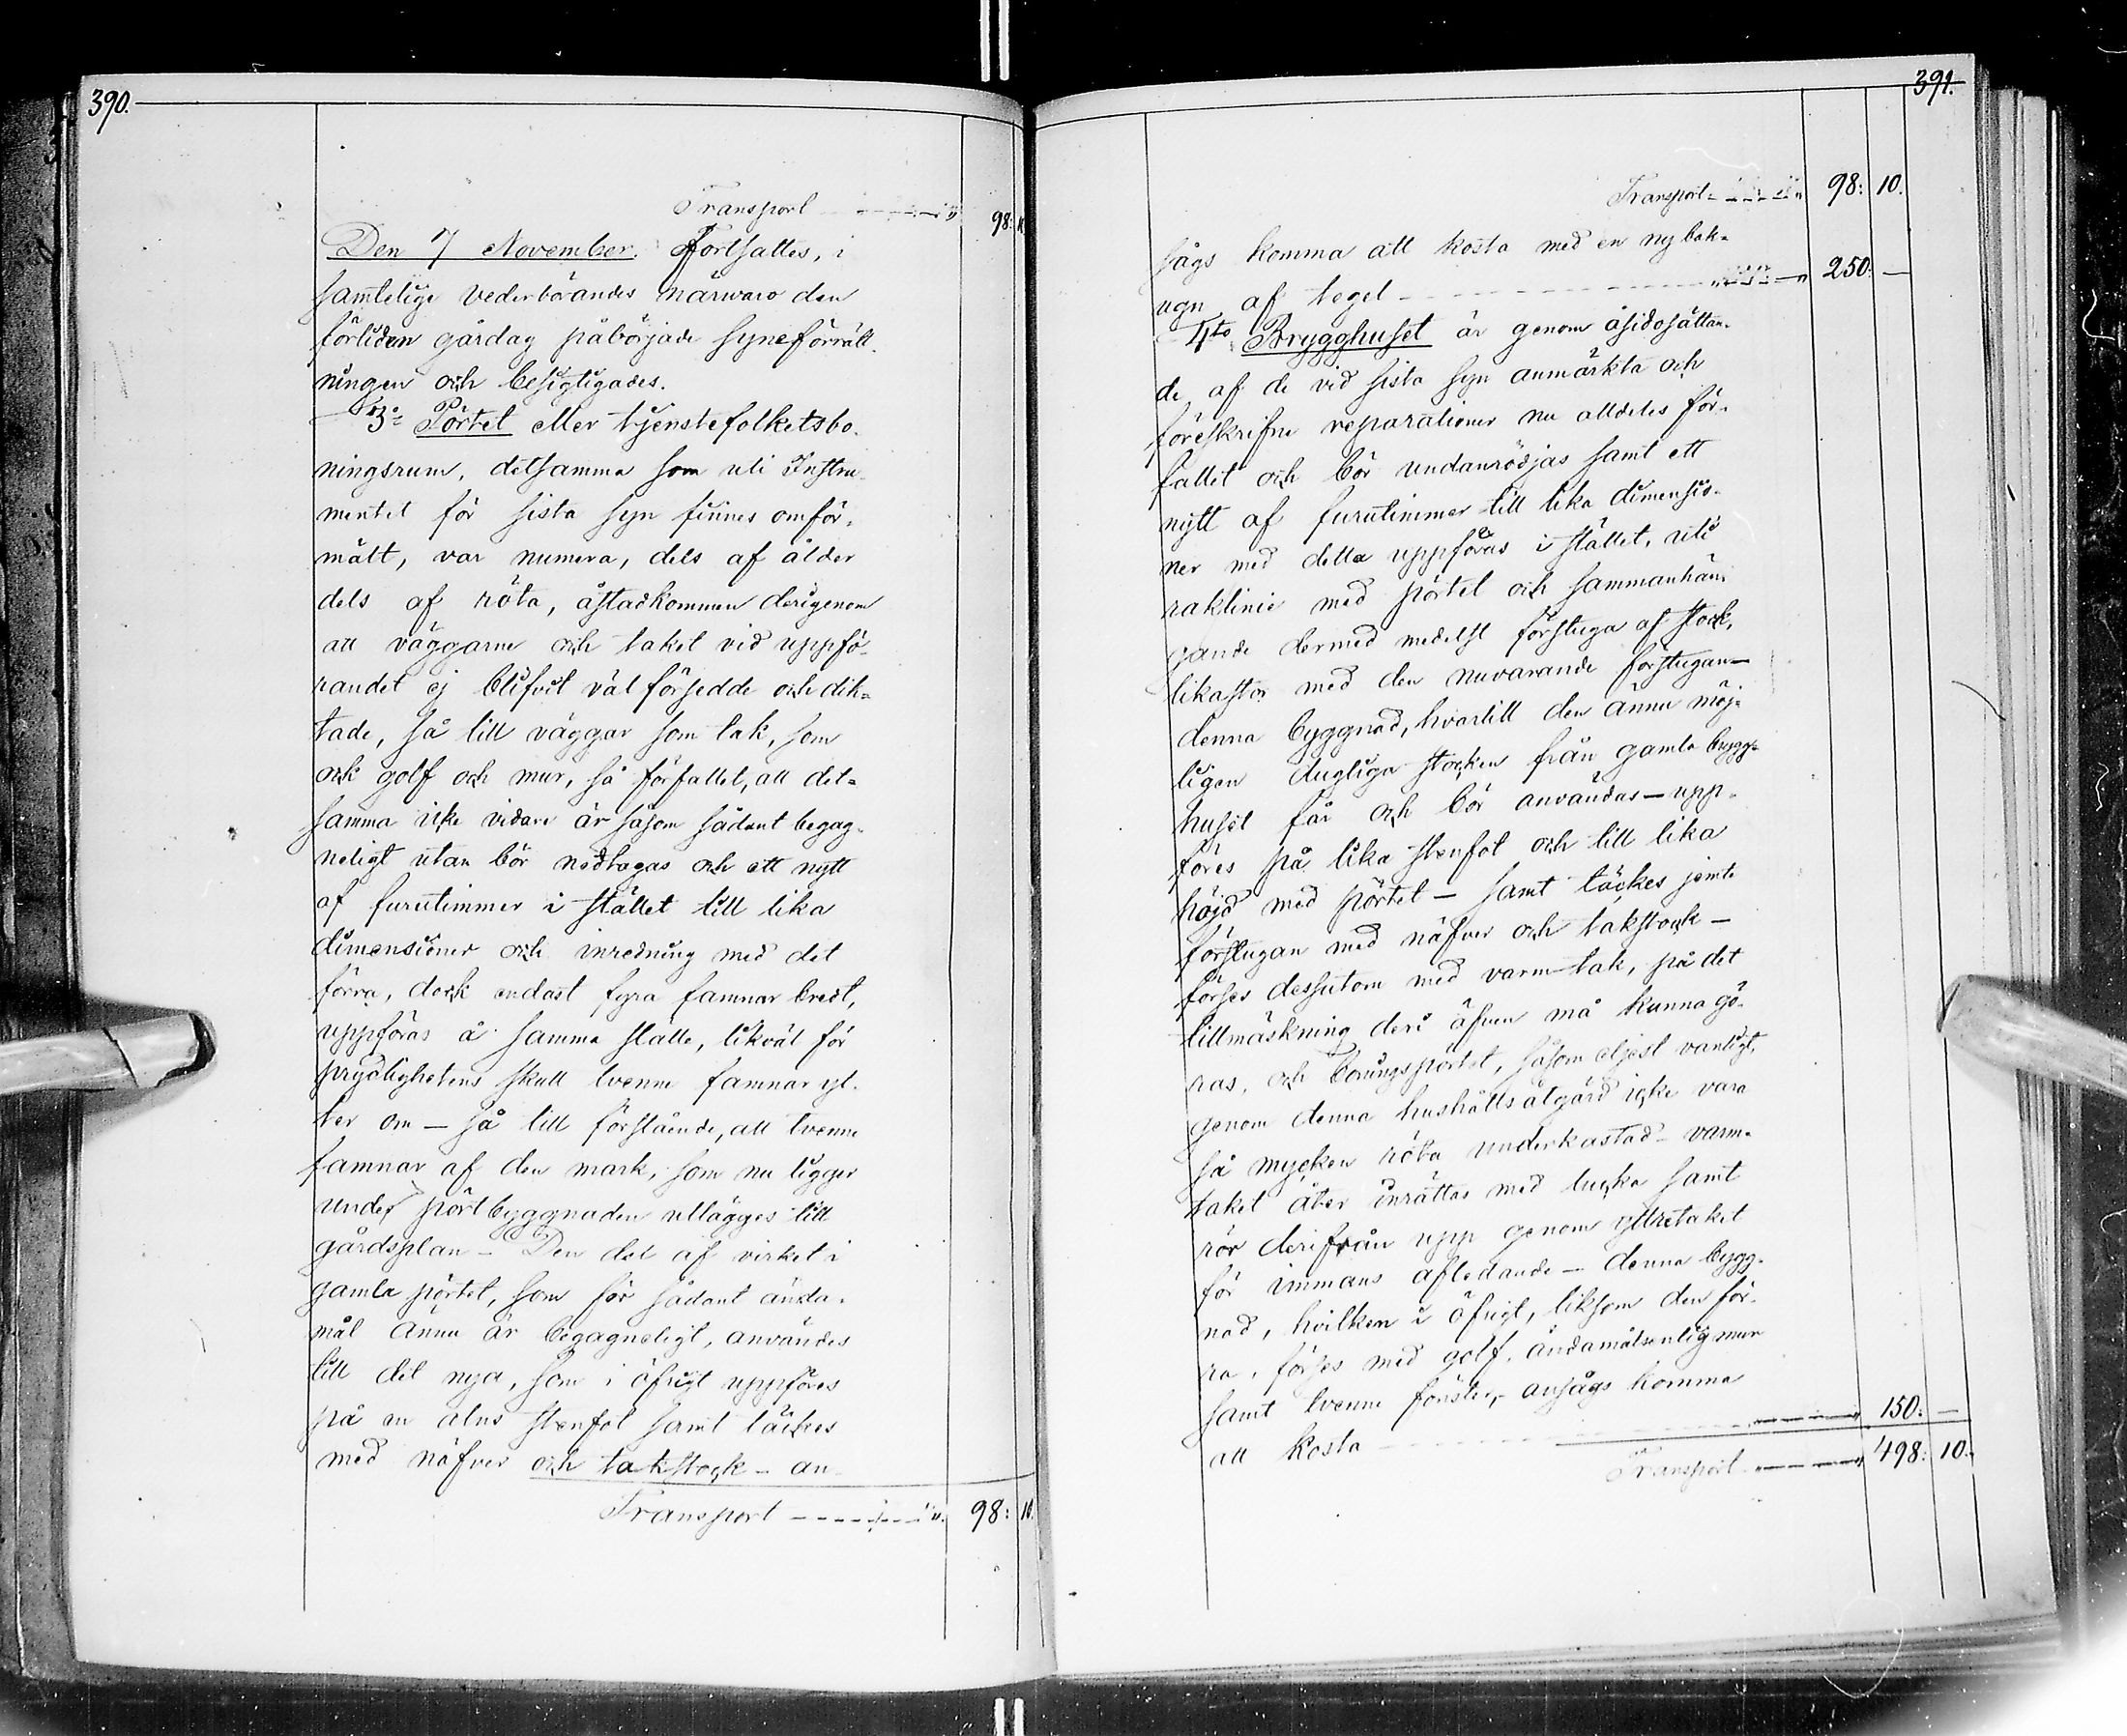 390.
Transport 98: 10
Den 7 November. Fortsattes, i
samtelige vederbörandes närwaro den
förliden gårdag påbörjade syneförrätt-
ningen och besigtigades.
3:o Pörtet eller tjenstefolketsbo-
ningsrum, detsamma som uti Instru-
mentet för sista syn finnes omför-
mält, var numera, dels af ålder
dels af röta, åstadkommen derigenom
att väggarne och taket vid uppfö-
randet ej blifvit väl försedde och dik-
tade, så till väggar som tak, som
ock golf och mur, så förfallet, att det-
samma icke vidare är såsom sådant begag-
neligt utan bör nedtagas och ett nytt
af furutimmer i stället till lika
dimensioner och inredning med det
förra, dock endast fyra famnar bredt,
uppföras å samma ställe, likväl för
prydlighetens skull tvenne famnar yt-
ter om — så till förstående, att tvenne
famnar af den mark, som nu ligger
under pörtbyggnaden utlägges till
gårdsplan — Den del af virket i
gamla pörtet, som för sådant ända-
mål ännu är begagneligt, användes
till det nya, som i öfrigt uppföres
på en alns stenfot samt täckes
med näfver och takstock — an-
Transport 98: 10.
391.
Transport 98: 10.
sågs komma att kosta med en ny bak-
ugn af tegel 250: —
4to Brygghuset är genom åsidosättan-
de af de vid sista syn anmärkta och
föreskrifne reparationer nu alldeles för-
fallet och bör undanrödjas samt ett
nytt af furutimmer till lika dimensio-
ner med detta uppföras i stället, uti
raklinie med pörtet och sammanhän-
gande dermed medelst förstuga af stock,
likastor med den nuvarande förstugan —
denna byggnad, hvartill den ännu möj-
ligen dugliga stocken från gamla brygg-
huset får och bör användas — upp-
föres på lika stenfot och till lika
höjd med pörtet — samt täckes jemte
förstugan med näfver och takstock —
förses dessutom med varm-tak, på det
tillmäskning deri äfven må kunna gö-
ras, och boningspörtet, såsom eljest vanligt,
genom denna hushållsåtgärd icke vara
så mycken röta underkastad — varm-
taket åter inrättas med lucka samt
rör derifrån upp genom yttretaket
för immans afledande — denna bygg-
nad, hvilken i öfrigt, liksom den för-
ra, förses med golf, ändamålsenlig mur
samt tvenne fönster, ansågs komma
att kosta 150: —
Transport 498: 10.